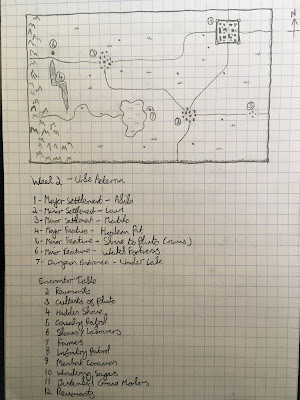 N
1
2
3
4
5
6
7
Week 2 - Urbs Aeterna
1 - Major Settlement -
2 - Minor Settlement -
3 - Minor Settlement -
4 - Major Feature - Pit
5 - Minor Feature - Shrine to Pluto (ruins)
6 - Minor Feature - Fortress
7 - Dungeon Entrance - Under Lake
Encounter Table
2 Revenants
3 Cultists of Pluto
4 Hidden Shrine
5 Cavalry Patrol
6 Slaves / Labourers
7 Farmers
8 Infantry Patrol
9 Merchant Caravan
10 Wandering
11 Disturbed Grave Markers
12 Revenants